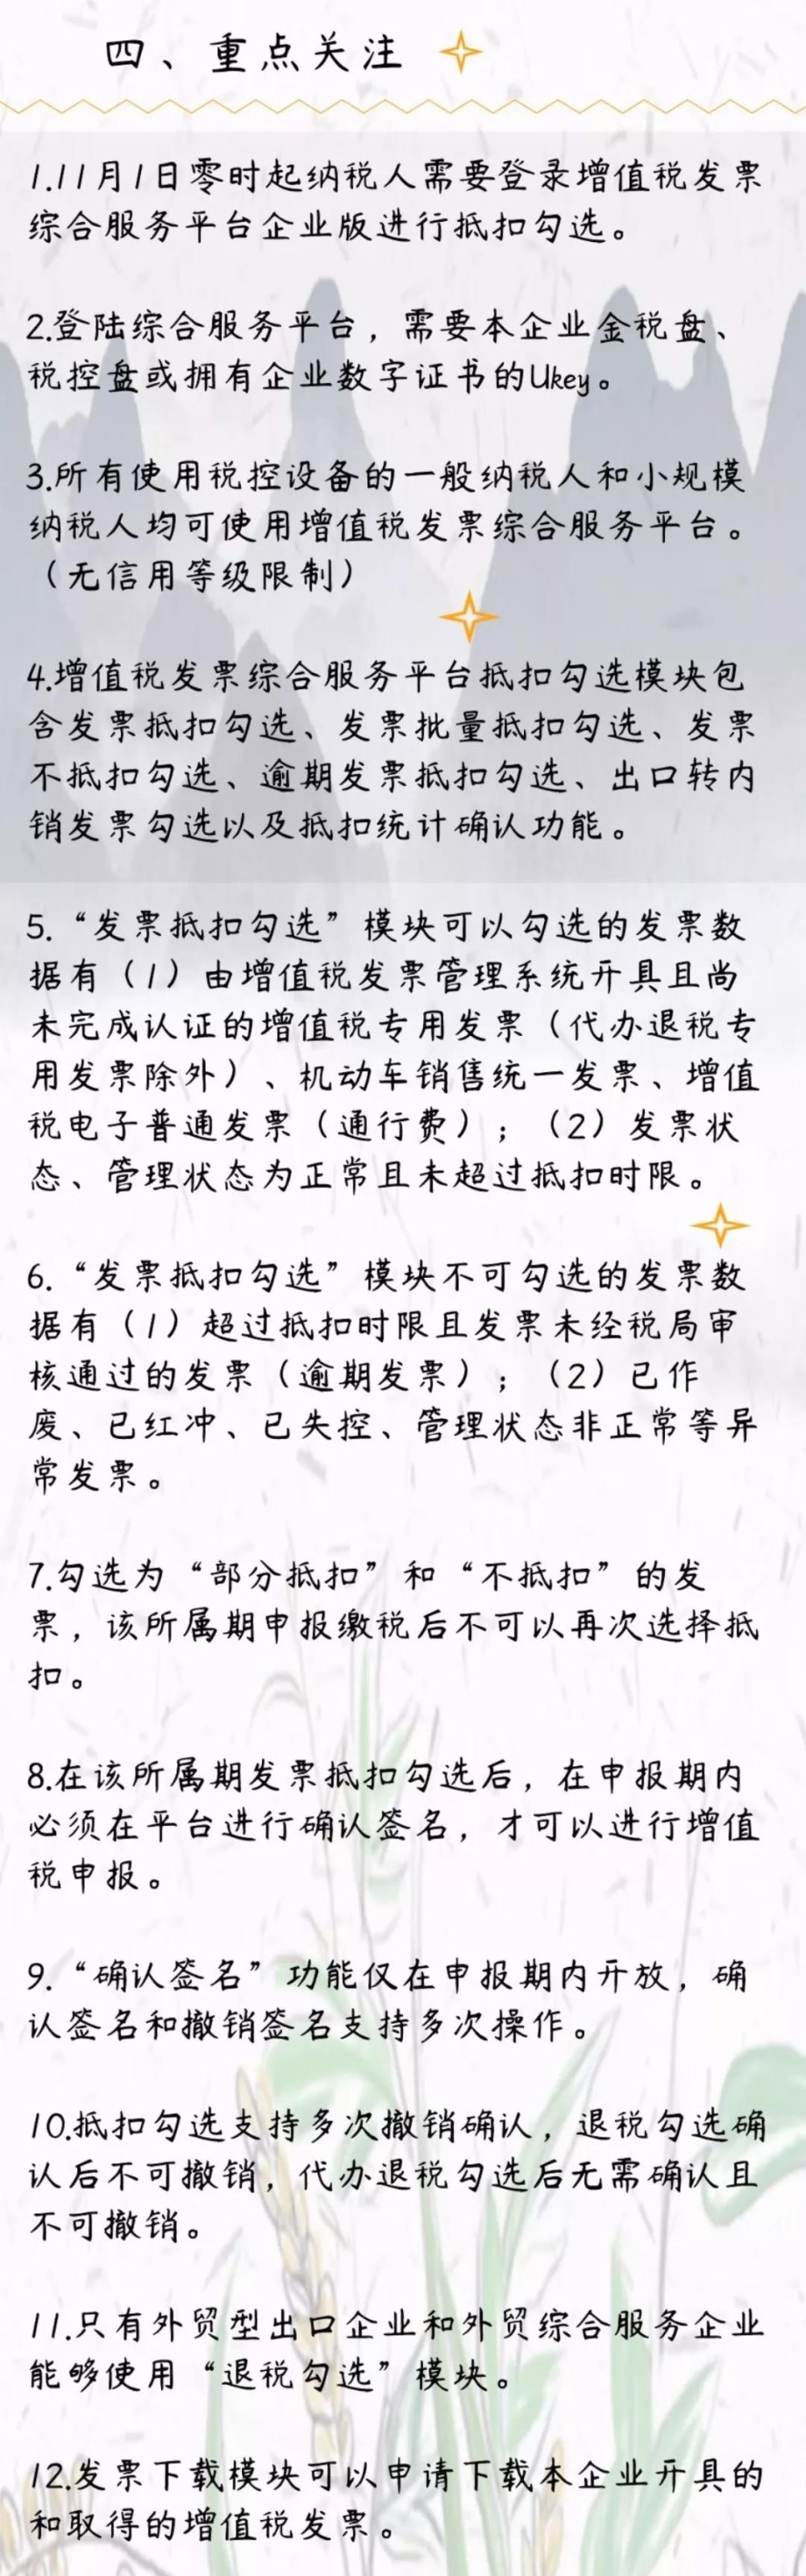 四、重点关注
1.11月1日零时起纳税人需要登录增值税发票
综合服务平台企业版进行抵扣勾选。
2.登陆综合服务平台，需要本企业金税盘、
税控盘或拥有企业数字证书的Ukey。
3.所有使用税控设备的一般纳税人和小规模
纳税人均可使用增值税发票综合服务平台。
（无信用等级限制）
4.增值税发票综合服务平台抵扣勾选模块包
含发票抵扣勾选、发票批量抵扣勾选、发票
不抵扣勾选、逾期发票抵扣勾选、出口转内
销发票勾选以及抵扣统计确认功能。
5.“发票抵扣勾选”模块可以勾选的发票数
据有（1）由增值税发票管理系统开具且尚
未完成认证的增值税专用发票（代办退税专
用发票除外）、机动车销售统一发票、增值
税电子普通发票（通行费）；（2）发票状
态、管理状态为正常且未超过抵扣时限。
6.“发票抵扣勾选”模块不可勾选的发票数
据有（1）超过抵扣时限且发票未经税局审
核通过的发票（逾期发票）；（2）已作
废、已红冲、已失控、管理状态非正常等异
常发票。
7.勾选为“部分抵扣”和“不抵扣”的发
票，该所属期申报缴税后不可以再次选择抵
扣。
8.在该所属期发票抵扣勾选后，在申报期内
必须在平台进行确认签名，才可以进行增值
税申报。
9.“确认签名”功能仅在申报期内开放，确
认签名和撤销签名支持多次操作。
10.抵扣勾选支持多次撤销确认，退税勾选确
认后不可撤销，代办退税勾选后无需确认且
不可撤销。
11.只有外贸型出口企业和外贸综合服务企业
能够使用“退税勾选”模块。
12.发票下载模块可以申请下载本企业开具的
和取得的增值税发票。